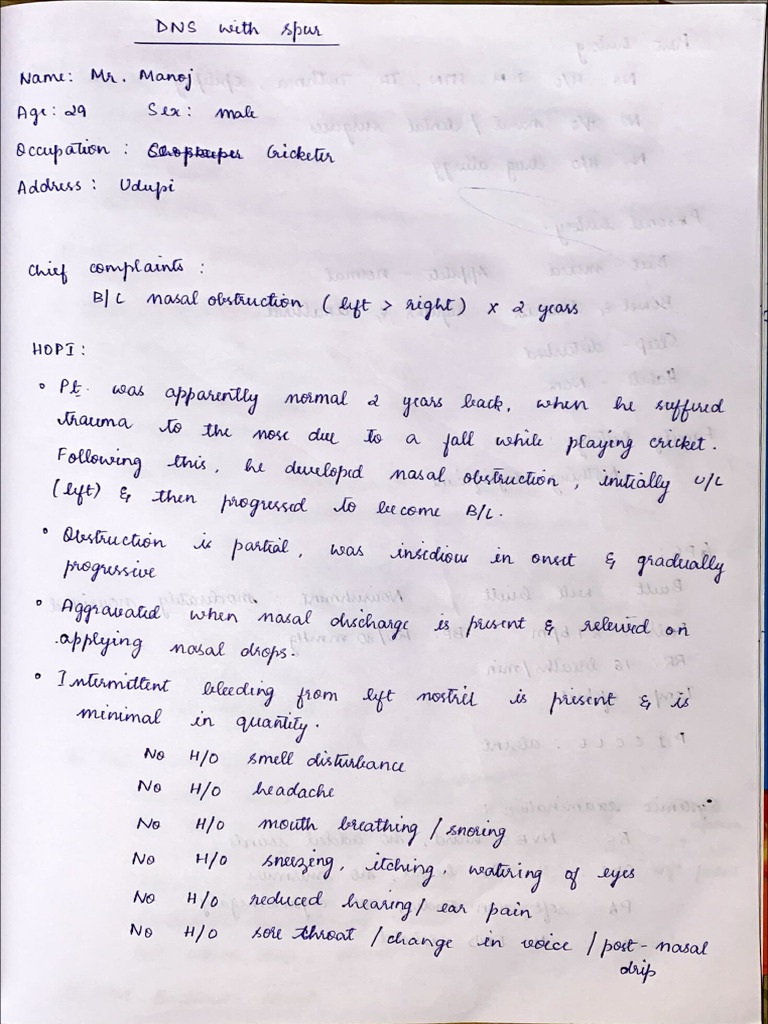 DNS with spur
Name: Mr. Manoj
Age: 29 Sex: male
Occupation: Cricketer
Address: Udupi
Chief complaints:
B/L nasal obstruction (left > right) x 2 years
HOPI:
• Pt. was apparently normal 2 years back, when he suffered
trauma to the nose due to a fall while playing cricket.
Following this, he developed nasal obstruction, initially U/L
(left) & then progressed to become B/L.
• Obstruction is partial, was insidious in onset & gradually
progressive
• Aggravated when nasal discharge is present & relieved on
applying nasal drops.
• Intermittent bleeding from left nostril is present & is
minimal in quantity.
No H/O smell disturbance
No H/O headache
No H/O mouth breathing / snoring
No H/O sneezing, itching, watering of eyes
No H/O reduced hearing / ear pain
No H/O sore throat / change in voice / post-nasal
drip